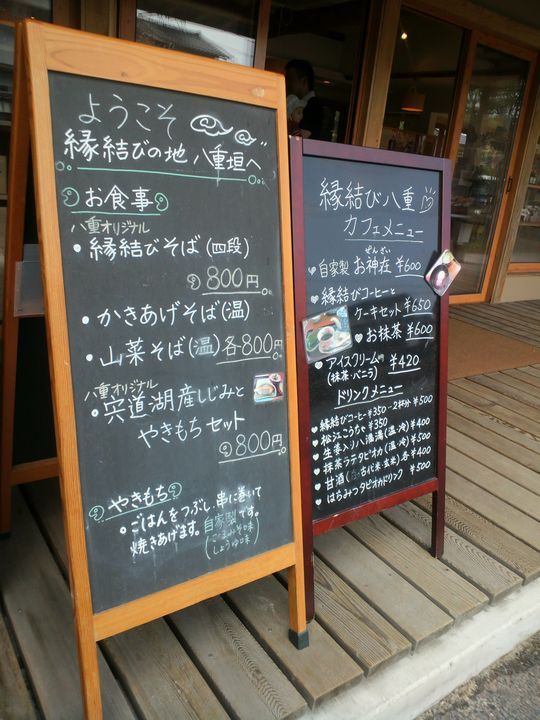 ようこそ
縁結びの地 八重垣へ
お食事
八重オリジナル
・縁結びそば(四段)
800円
・かきあげそば(温)
・山菜そば(温)各800円
八重オリジナル
・宍道湖産しじみと
やきもちセット
800円
やきもち
・ごはんをつぶし、串に巻いて
焼きあげます。自家製です。
しょうゆ味
縁結び八重
カフェメニュー
ぜんざい
♥自家製 お神在 ¥600
♥縁結びコーヒーと
ケーキセット ¥650
♥お抹茶 ¥600
・アイスクリーム ¥420
(抹茶・バニラ)
ドリンクメニュー
♥縁結びコーヒー ¥350・2杯分 ¥500
♥松江こうちゃ ¥350
♥生姜入り八濃湯(温・冷) ¥400
♥抹茶ラテタピオカ(温・冷) ¥500
♥甘酒(古代米・玄米)各 ¥400
♥はちみつタピオカドリンク ¥500